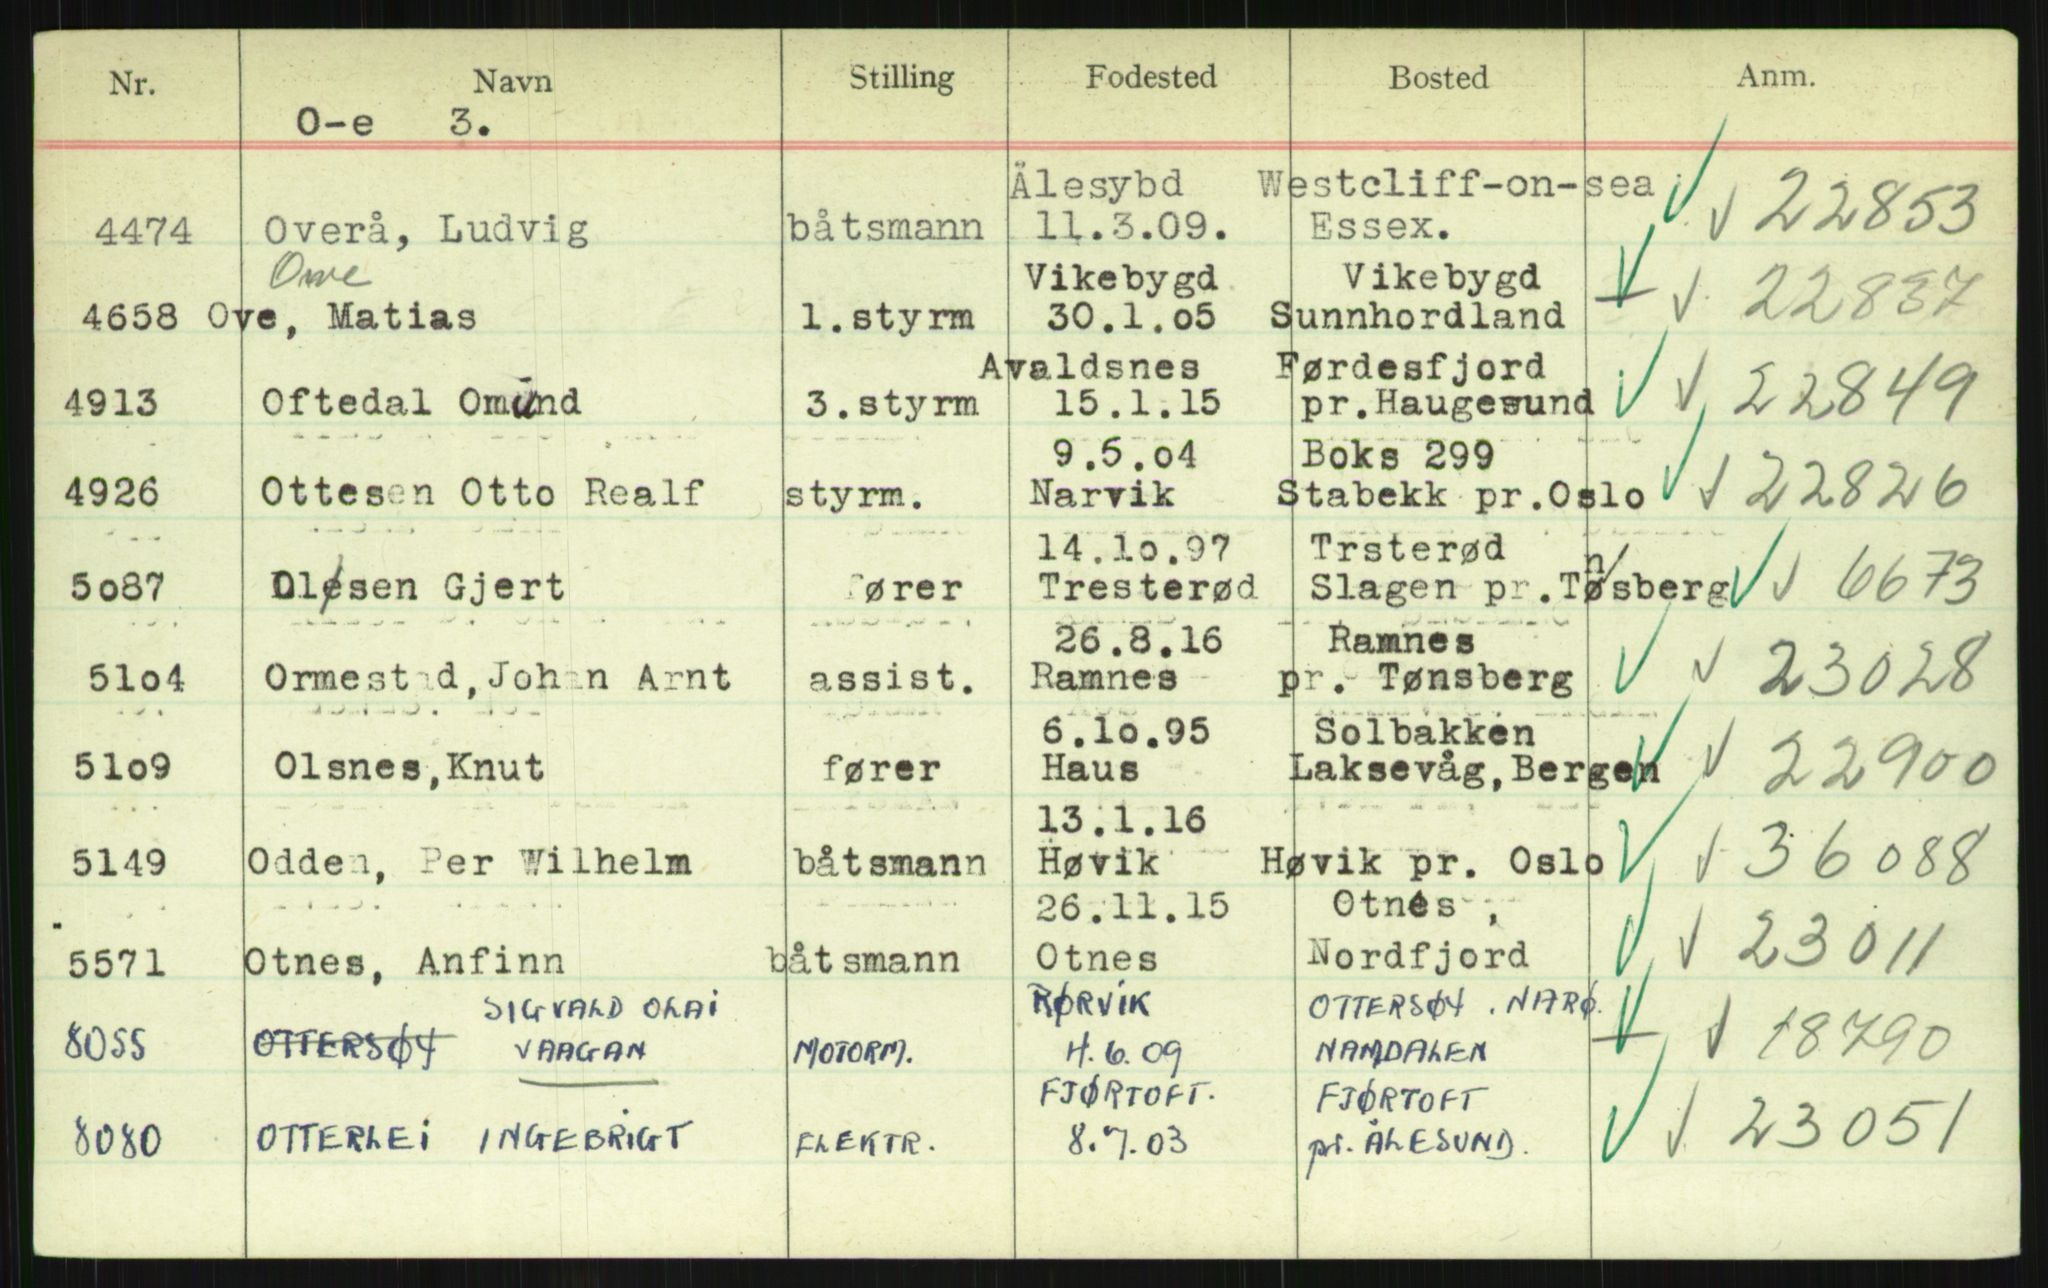 Nr. Navn Stilling Fodested Bosted Anm.
O-e 3.
Ålesybd Westcliff-on-sea
4474 Overå, Ludvig båtsmann 11.3.09. Essex. √ √ 22853
Owe Vikebygd Vikebygd
4658 Ove, Matias 1.styrm 30.1.o5 Sunnhordland √ √ 22837
Avaldsnes Førdesfjord
4913 Oftedal Omund 3.styrm 15.1.15 pr.Haugesund √ √ 22849
9.5.o4 Boks 299
4926 Ottesen Otto Realf styrm. Narvik Stabekk pr.Oslo √ √ 22826
14.1o.97 Trsterød
5o87 Olesen Gjert fører Tresterød Slagen pr.Tønsberg √ √ 6673
26.8.16 Ramnes
51o4 Ormestad, Johan Arnt assist. Ramnes pr. Tønsberg √ √ 23028
6.1o.95 Solbakken
51o9 Olsnes, Knut fører Haus Laksevåg, Bergen √ √ 22900
13.1.16
5149 Odden, Per Wilhelm båtsmann Høvik Høvik pr. Oslo √ √ 36088
26.11.15 Otnes ,
5571 Otnes, Anfinn båtsmann Otnes Nordfjord √ √ 23011
SIGVALD OLAI RØRVIK OTTERSØY . NARØ.
8055 OTTERSØY VAAGAN MOTORM. 4.6.09 NAMDALEN √ √ 18790
FJØRTOFT. FJØRTOFT
8080 OTTERLEI INGEBRIGT ELEKTR. 8.7.03 pr. ÅLESUND. √ √ 23051